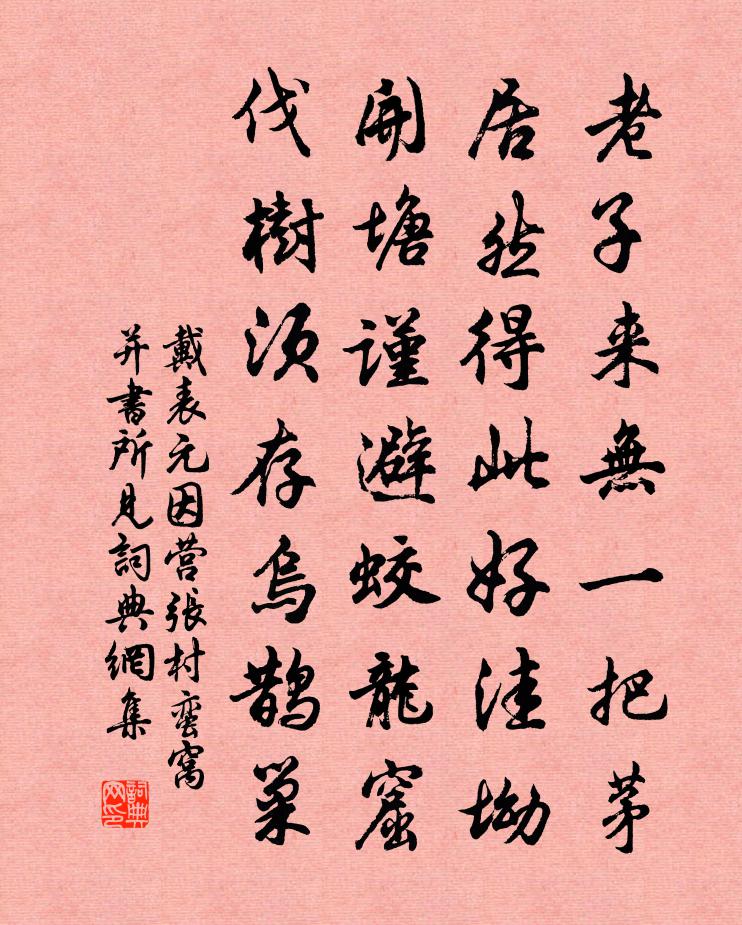 老子来無一把茅
居然得此好洼坳
開塘謹避蛟龍窟
伐樹須存烏鵲巢
戴表元因营張村蛮窩
并書所見詞典網集
詞典网印